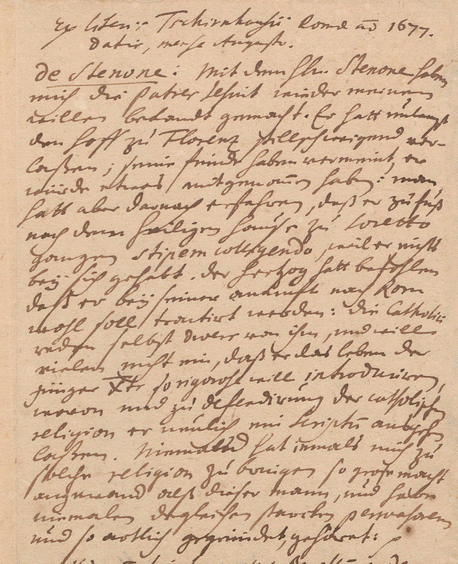 Ex liter: Tschirnhausii Româ aō 1677.
datis, mense Augusti.
de Stenone: Mit dem Hln. Stenone haben
mich die patres Jesuit wieder meinen
willen bekandt gemacht. Er hatt unlengst
den hoff zu Florenz stillschweigend ver-
lassen; seine feinde haben vermeint, er
würde etwas mitgenommen haben: man
hatt aber darnach erfahren, daß er zu fuß
nach dem heiligen hause zu Loretto
gangen stipem colligendo, weil er nichts
bey sich gehabt. der Herzog hatt befohlen
daß er bey seiner ankunft nach Rom
wohl soll tractirt werden: die Catholici
reden selbst von ihm, und will
vielen nicht ein, daß er das leben der
jünger Xti so rigorose will introduciren,
wovon und zu defendirung der catholischen
religion er neulich ein scriptum ausgehen
lassen. Niemand hat iemals mich zu
solche religion zu bringen so große macht
angewand alß dieser mann, und habe
niemalen dergleichen starcke
und so artlich gegründet gehöret: